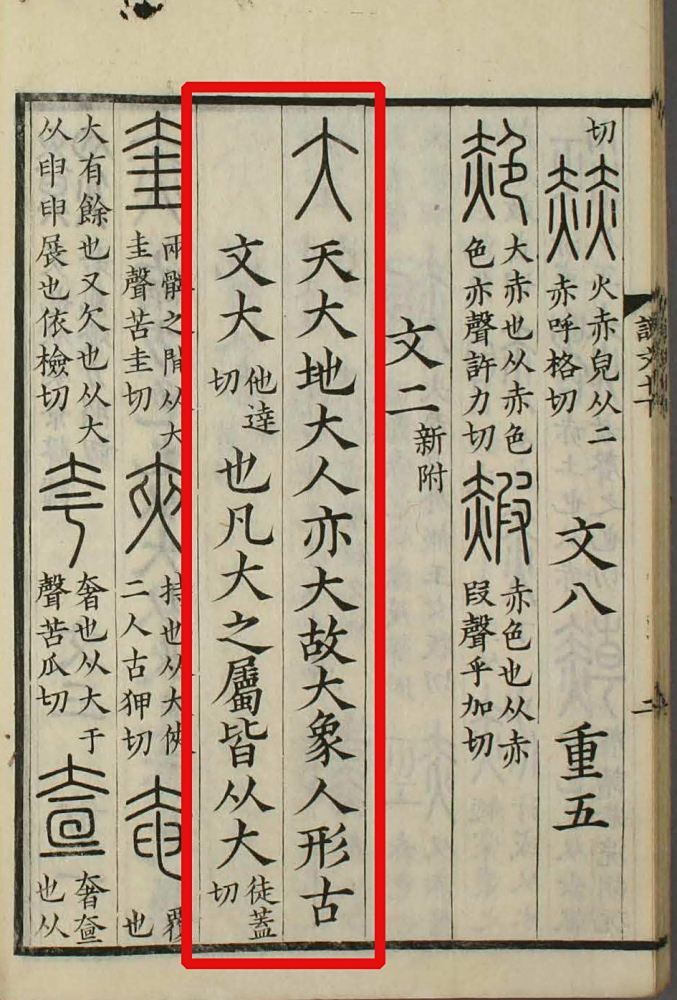 切
赫
火赤皃从二
赤呼格切
文八
重五
赩
大赤也从赤色
色亦聲許力切
赮
赤色也从赤
叚聲乎加切
文二
新附
大天大地大人亦大故大象人形古
文大他達切也凡大之屬皆从大徒蓋切
奎
兩髀之閒从大
圭聲苦圭切
夾
持也从大俠
二人古狎切
奄
覆
也
大有餘也又欠也从大
从申申展也依檢切
夸
奢也从大于
聲苦瓜切
奢
也从